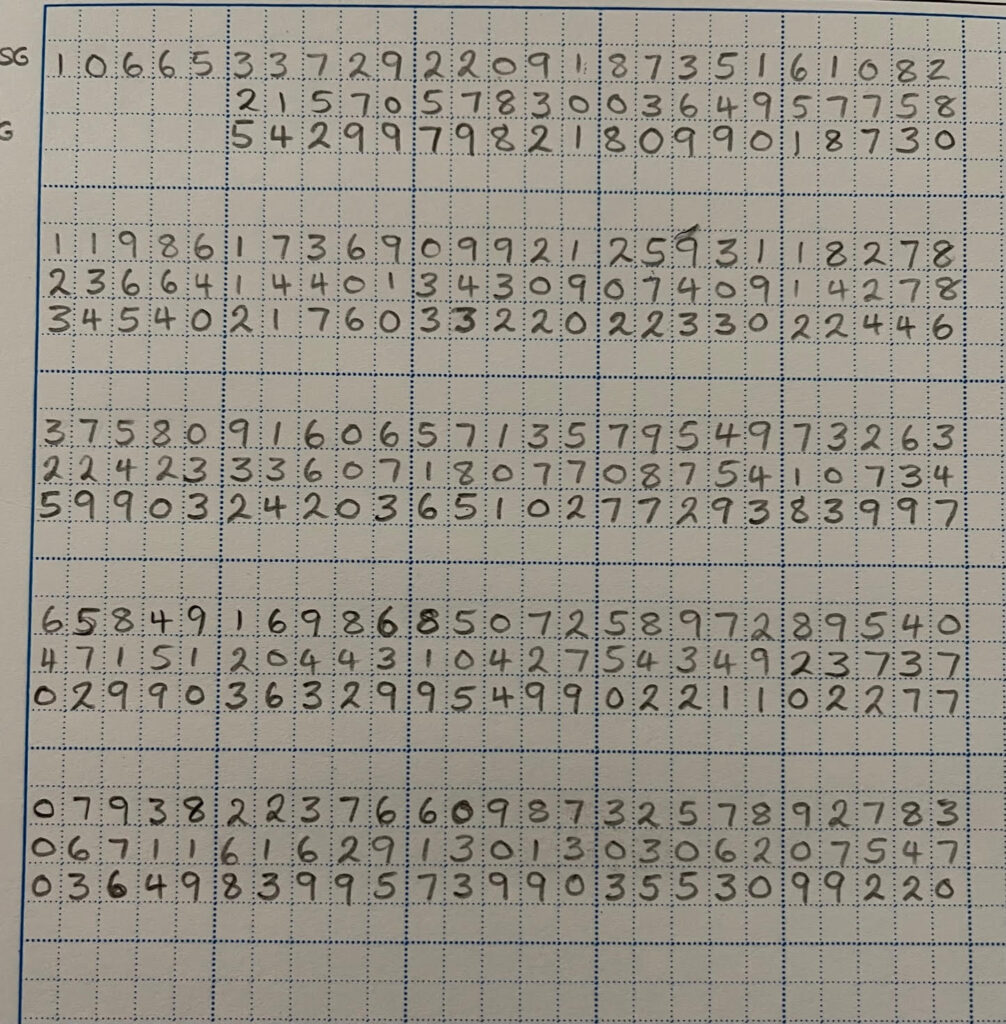 SG 10665 33729 22091 87351 61082
21570 57830 03649 57758
G 54299 79821 80990 18730
11986 17369 09921 25931 18278
23664 14401 34309 07409 14278
34540 21760 33220 22330 22446
37580 91606 57135 79549 73263
22423 33607 18077 08754 10734
59903 24203 65102 77293 83997
65849 16986 85072 58972 89540
47151 20443 10427 54349 23737
02990 36329 95499 02211 02277
07938 22376 60987 32578 92783
06711 61629 13013 03062 07547
03649 83995 73990 35530 99220